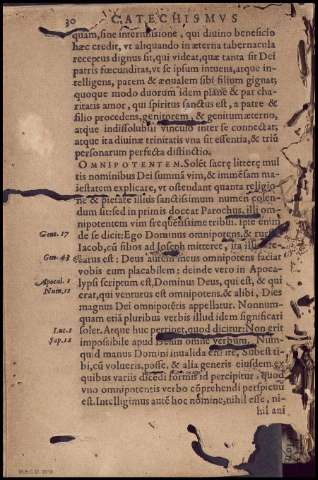 30 CATECHISMVS
quam, sine intermissione, qui diuino beneficio
hæc credit, vt aliquando in æterna tabernacula
receptus dignus sit, qui videat, quæ tanta sit Dei
patris fœcunditas, vt se ipsum intuens, atque in-
telligens, parem & æqualem sibi filium gignat;
quoque modo duorum idem planè & par cha-
ritatis amor, qui spiritus sanctus est, a patre &
filio procedens, genitorem, & genitum æterno,
atque indissolubili vinculo inter se connectat;
atque ita diuinæ trinitatis vna sit essentia, & triũ
personarum perfecta distinctio.
OMNIPOTENTEM. Solẽt sacræ litteræ mul
tis nominibus Dei summã vim, & immẽsam ma-
iestatem explicare, vt ostendant quanta religio
ne & pietate illius sanctissimum numen colen-
dum sit: sed in primis doceat Parochus, illi om
nipotentem vim frequẽtissimè tribui. Ipse enim
Gene. 17 de se dicit: Ego Dominus omnipotens, & rursus
Iacob, cũ filios ad Joseph mitteret, ita illis
Gen. 43 catus est; Deus autem meus omnipotens faciat
vobis eum placabilem; deinde vero in Apoca-
Apocal. 1 lypsi scriptum est, Dominus Deus, qui est, & qui
Num. 11 erat, qui venturus est omnipotens. & alibi, Dies
magnus Dei omnipotẽtis appellatur. Nonnun-
quam etiã pluribus verbis illud idem significari
Luc. 1 solet. Atque huc pertinet, quod dicitur: Non erit
Sap. 12 impossibile apud Deum omne verbum. Num-
quid manus Domini inualida est? Subest ti-
bi, cũ volueris, posse. & alia generis eiusdem. ex
quibus variis dicẽdi formis id percipitur, quod
vno omnipotentis verbo cõprehendi perspicuũ
est. Intelligimus autẽ hoc nomine, nihil esse, ni-
hil ani